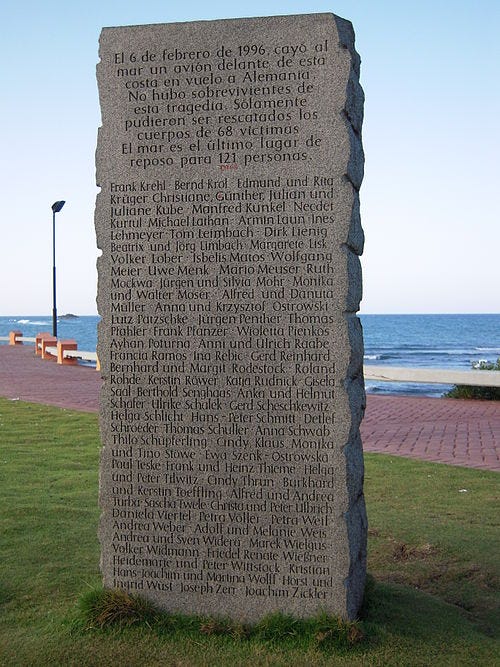 El 6 de febrero de 1996, cayó al
mar un avión delante de esta
costa en vuelo a Alemania.
No hubo sobrevivientes de
esta tragedia. Sólamente
pudieron ser rescatados los
cuerpos de 68 víctimas
El mar es el último lugar de
reposo para 121 personas.
Frank Krehl · Bernd Krol · Edmund und Rita
Krüger Christiane, Günther, Julian und
Juliane Kube · Manfred Kunkel · Needer
Kurtul · Michael Lathan · Armin Laun · Ines
Lehmeyer · Tom Leimbach · Dirk Lienig
Beatrix und Jörg Limbach · Margarete Lisk
Volker Lober · Isbelis Matos · Wolfgang
Meier · Uwe Menk · Mario Meuser · Ruth
Mockwa · Jürgen und Silvia Mohr · Monika
und Walter Moser · Alfred und Danuta
Müller · Anna und Krzysztof Ostrowski
Lutz Patzschke · Jürgen Penther · Thomas
Pfahler · Frank Pfanzer · Wioletta Pienkos
Ayhan Poturna · Anni und Ulrich Raabe
Francia Ramos · Ina Rebic · Gerd Reinhard
Bernhard und Margit Rodestock · Roland
Rohde · Kerstin Röwer · Katja Rudnick · Gisela
Saal · Berthold Senghaas · Anka und Helmut
Schäfer · Ulrike Schalek · Gerd Scheschkewitz
Helga Schlicht · Hans-Peter Schmitt · Detlef
Schroeder · Thomas Schuller · Anna Schwab
Thilo Schüpferling · Cindy, Klaus, Monika
und Tino Stöwe · Ewa Szenk-Ostrowska
Paul Teske · Frank und Heinz Thieme · Helga
und Peter Tilwitz · Cindy Thrun · Burkhard
und Kerstin Toeffling · Alfred und Andrea
Turba · Sascha Twele · Christa und Peter Ulbrich
Daniela Viertel · Petra Völler · Petra Weif
Andrea Weber · Adolf und Melanie Weis
Andrea und Sven Widera · Marek Wielgus
Volker Widmann · Friedel Renate Wießner
Heidemarie und Peter Wittstock · Kristian
Hans-Joachim und Martina Wolff · Horst und
Ingrid Wüst · Joseph Zerr · Joachim Zickler